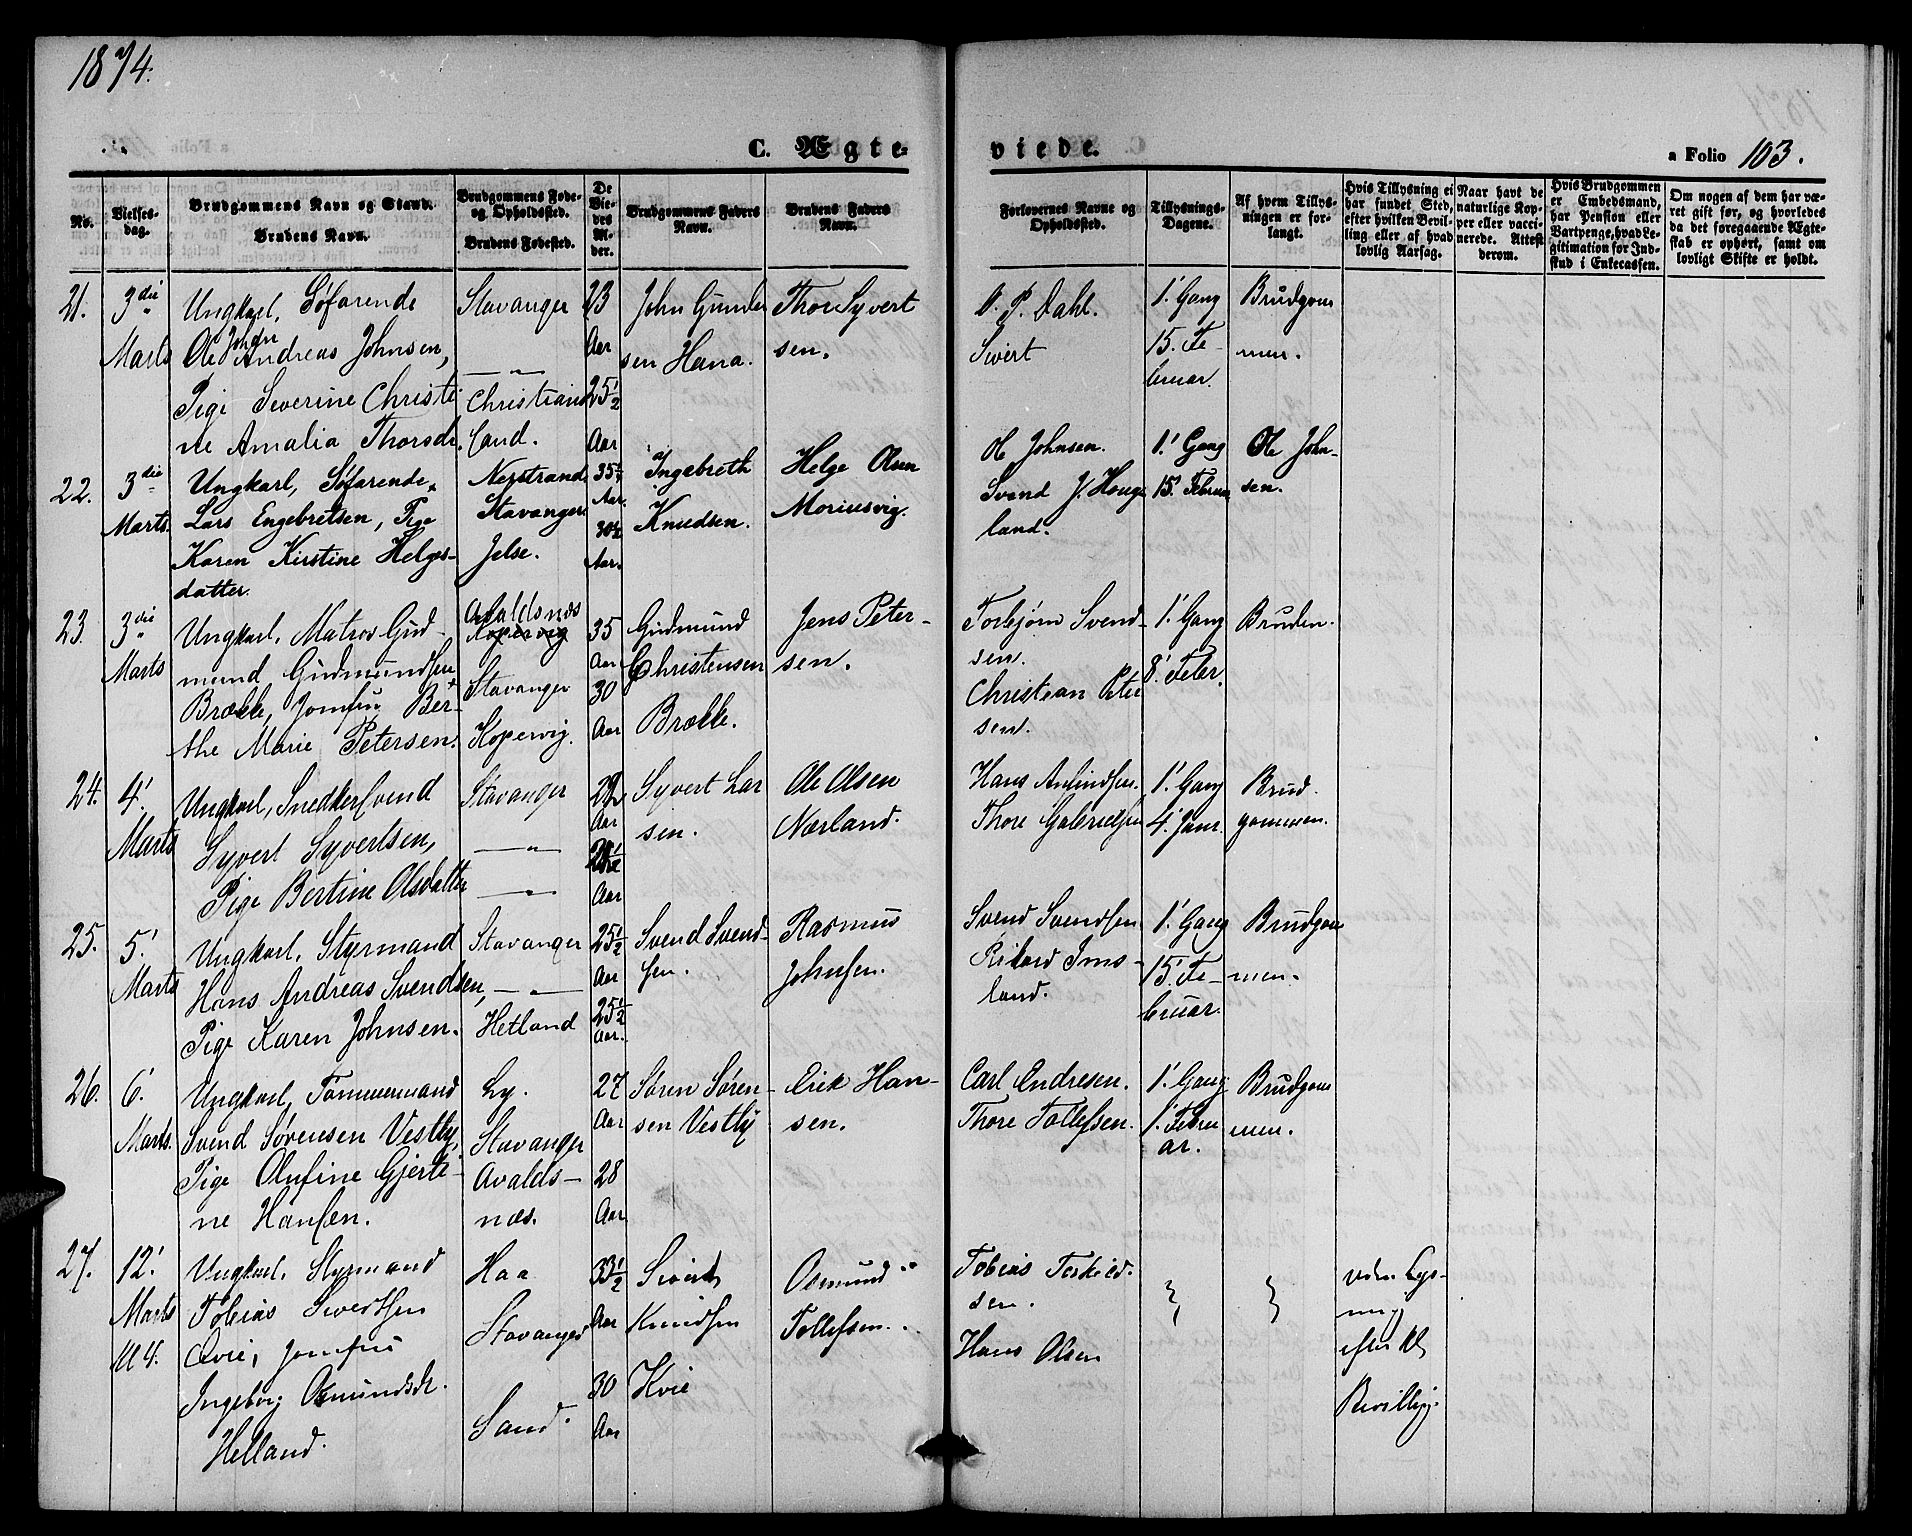 1874.
C. Ægte-
viede.
a Folio 103.
No.
Vielses-
dag.
Brudgommens Navn og Stand.
Brudens Navn.
Brudgommens Føde-
og Opholdssted.
Brudens Fødested.
De
Vie-
des
Al-
der.
Brudgommens Faders
Navn.
Brudens Faders
Navn.
Forlovernes Navne og
Opholdssted.
Tillysnings-
Dagene.
Af hvem Tillys-
ningen er for-
langt.
Hvis Tillysning ei
har fundet Sted,
efter hvilken Bevil-
ling eller af hvad
lovlig Aarsag.
Naar havt de
naturlige Kop-
per eller vacci-
nerede. Attest
derom.
Hvis Brudgommen
er Embedsmand,
har Pension eller
Vartpenge, hvad Le-
gitimation for Ind-
skud i Enkecassen.
Om nogen af dem har væ-
ret gift før, og hvorledes
da det foregaaende Ægte-
skab er ophørt, samt om
lovligt Skifte er holdt.
21.
3die
Marts
Ungkarl, Søfarende
Ole Johan Andreas Johnsen,
Pige Severine Christi
ne Amalia Thorsdr.
Stavanger
— " —
Christian
sand.
23
Aar
25½
Aar
John Gunder
sen Hana.
Thor Syvert
sen.
O. P. Dahl.
Sivert
1' Gang
15. Fe-
bruar.
Brudgom
men.
22.
3die
Marts.
Ungkarl, Søfarende,
Lars Engebretsen, Pige
Karen Kirstine Helges-
datter.
Nerstrand
Stavanger
Jelse.
35½
Aar.
30½
Aar.
Ingebreth
Knudsen.
Helge Olsen
Moriusvig.
Ole Johnsen.
Svend J. Houge
land.
1' Gang
15. Februar
Ole John-
sen.
23.
3die
Marts
Ungkarl, Matros Gud-
mund Gudmundsen
Brække, Jomfru Ber-
the Marie Petersen.
Avaldsnæs
Kopervig
Stavanger
Kopervig.
35
Aar
30
Aar
Gudmund
Christensen
Brække.
Jens Peter-
sen.
Torbjørn Svend-
sen.
Christian Peter
sen.
1' Gang
8' Febr.
Bruden.
24.
4'
Marts
Ungkarl, Snedkersvend
Syvert Syvertsen,
Pige Bertine Olsdatter
Stavanger
— " —
— " —
29
Aar
Aar
Syvert Lar
sen.
Ole Olsen
Nærland.
Hans
Thore Gabrielsen
1' Gang
4' Janr.
Brud-
gommen.
25.
5'
Marts
Ungkarl, Styrmand
Hans Andreas Svendsen,
Pige Karen Johnsen.
Stavanger
— " —
Hetland
25½
Aar
25½
Aar.
Svend Svend-
sen.
Rasmus
Johnsen.
Svend Svendsen
Rikard Ims-
land.
1' Gang
15. Fe-
bruar.
Brudgom
men.
26.
6'
Marts.
Ungkarl, Tømmermand
Svend Sørensen Vestly,
Pige Olufine Gjerti-
ne Hansen.
Ly.
Stavanger
Avalds-
næs.
27
Aar
28
Aar
Søren Søren-
sen Vestly
Erik Han-
sen.
Carl Endresen.
Thore Tollefsen.
1' Gang
1' Febru
ar.
Brudgom
men.
27.
12'
Marts
Ungkarl, Styrmand
Tobias Sivertsen
Qvie, Jomfru
Ingeborg Osmundsdr.
Helland.
Haa
Stavanger
Sand.
33½
Aar
30
Aar
Sivert
Knudsen
Kvie
Osmund
Tollefsen.
Tobias Torkild-
sen.
Hans Olsen
uden Lys-
ning
efter kl
Bevillig.